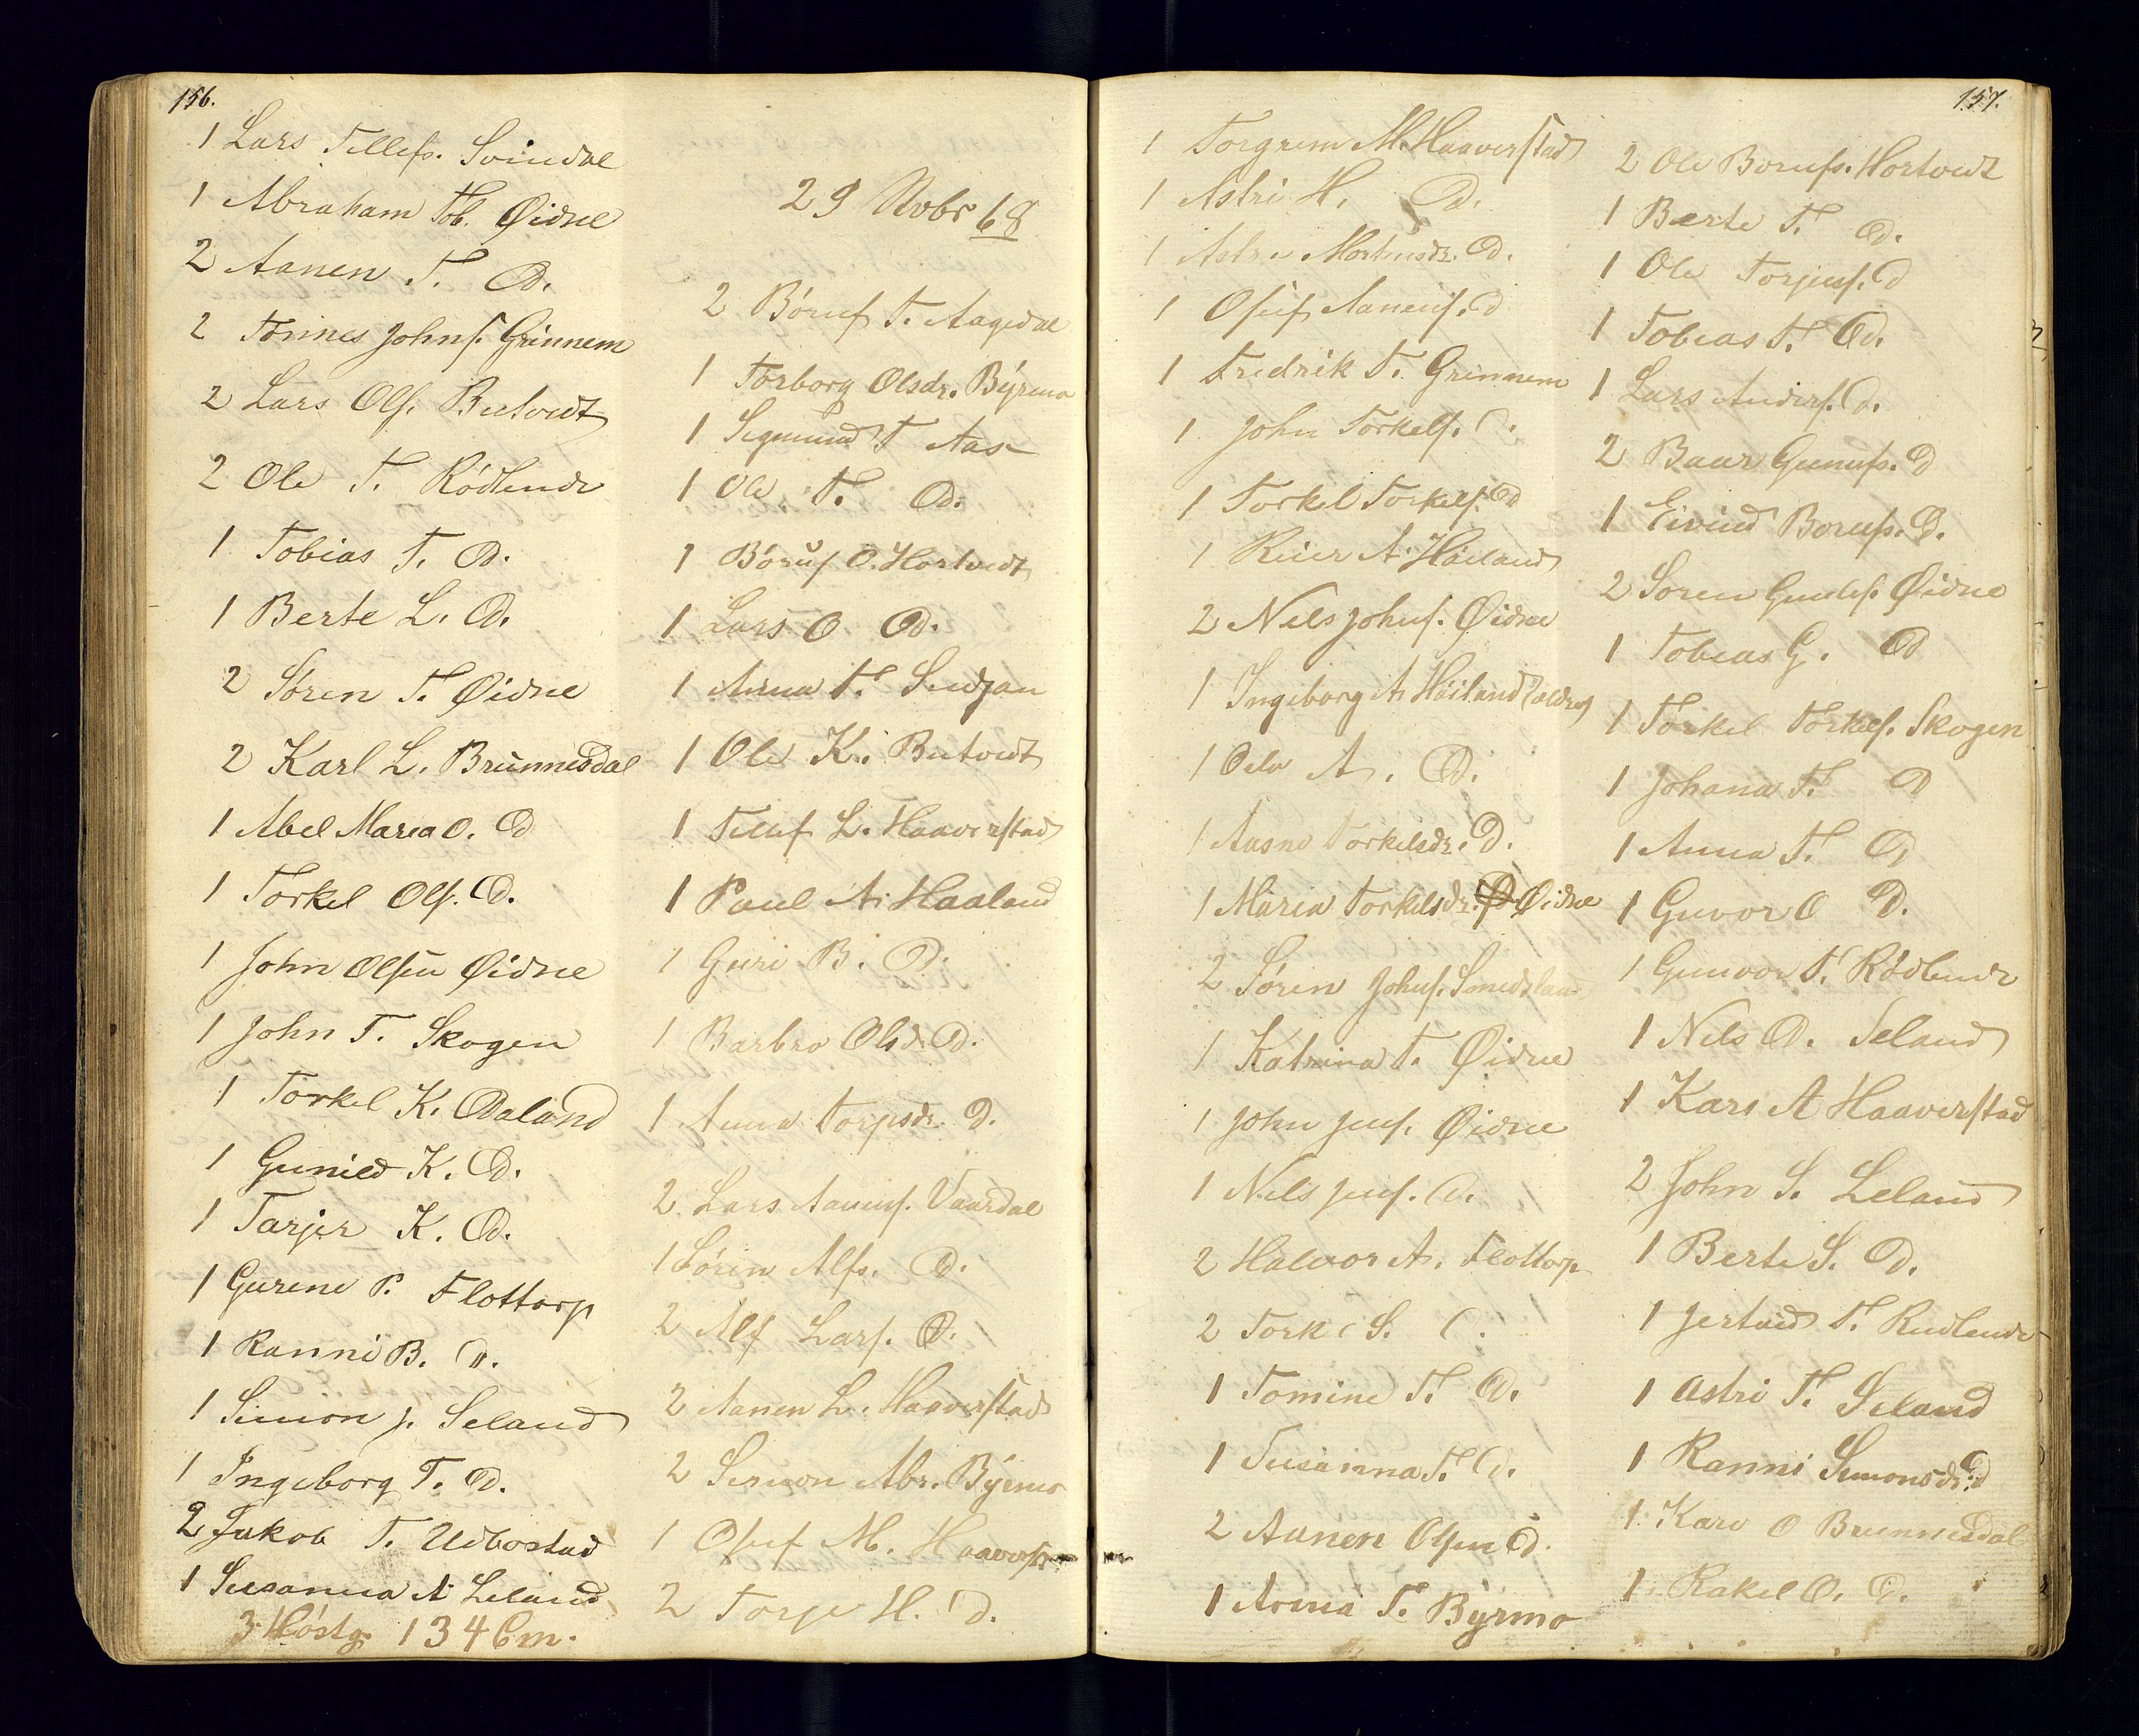 156.
1 Lars Tellefs. Svindal
1 Abraham Tob. Øidne
2 Aanen T. D.
2 Tønnes Johns. Grinnem
2 Lars Ols. Butvedt
2 Ole T. Rødlende
1 Tobias T. D.
1 Berte L. D.
2 Søren T. Øidne
2 Karl L. Brunnesdal
1 Abel Maria O. D
1 Torkel Ols. D.
1 John Olsen Øidne
1 John T. Skogen
1 Torkel K. Daland
1 Gunild K. D.
1 Tarjer K. D.
1 Gurene P. Flottorp
1 Ranni B. D.
1 Simon J. Seland
1 Ingeborg T. D.
2 Jakob T. Udbostad
1 Susanna A Leland
3 Høstg 134 Cm.
29 Nvbr 68
2 Børuf T. Aagedal
1 Torborg Olsdr. Byrmo
1 Sigmund T Aas
1 Ole T. D.
1 Børuf O. Hortvedt
1 Lars O D.
1 Anna T.
1 Ole K. Butvedt
1 Tellef L. Haaverstad
1 Paul A. Haaland
1 Guri B. D.
1 Barbro Olsd. D.
1 Anna Torjusdr. D.
2 Lars Aanens. Vaardal
1 Sørin Alfs. D.
2 Alf Lars. D.
2 Aanen L. Haaverstad
2 Simon Abr. Byrmo
1 Osuf M. Haaverst
2 Torje H. D.
157.
1 Torgrem M. Haaverstad
1 Astri H. D.
1 Astri Mortensdr. D.
1 Osuf Aanens. D
1 Fredrik T. Grinnem
1 John Torkels. D.
1 Torkel Torkels. D
1 Reier A. Høiland
2 Nils Johns. Øidne
1 Ingeborg A. Høiland (oldre)
1 Oela A. D.
1 Aasne Torkelsdr. D.
1 Maria Torkelsdr. D Øidne
2 Søren Johns. Smedsland
1 Katrina T. Øidne
1 John Jens. Øidne
1 Nils Jens. D.
2 Halvor A. Flottorp
2 Tork S. D.
1 Tomine T. D.
1 Susanna T. D.
2 Aanen Olsen D.
1 Anna T. Byrmo
2 Ole Borufs. Hortvedt
1 Berte T. D.
1 Ole Torjus. D
1 Tobias T. D.
1 Lars Anders. D.
2 Baar Gunufs. D
1 Eivind Borufs. D.
2 Soren Gundes. Øidne
1 Tobias G. D
1 Torkel Torkels. Skogen
1 Johana T. D
1 Anna T. D
1 Guvor O D.
1 Gunvor T. Rødlende
1 Nils D. Seland
1 Kars A Haaverstad
2 John S. Leland
1 Berte S. D.
1 Jertrud T. Rudlende
1 Astri T. Seland
1 Ranni Simonsdr. D
1 Kare O Brunnesdal
1 Rakel O. D.